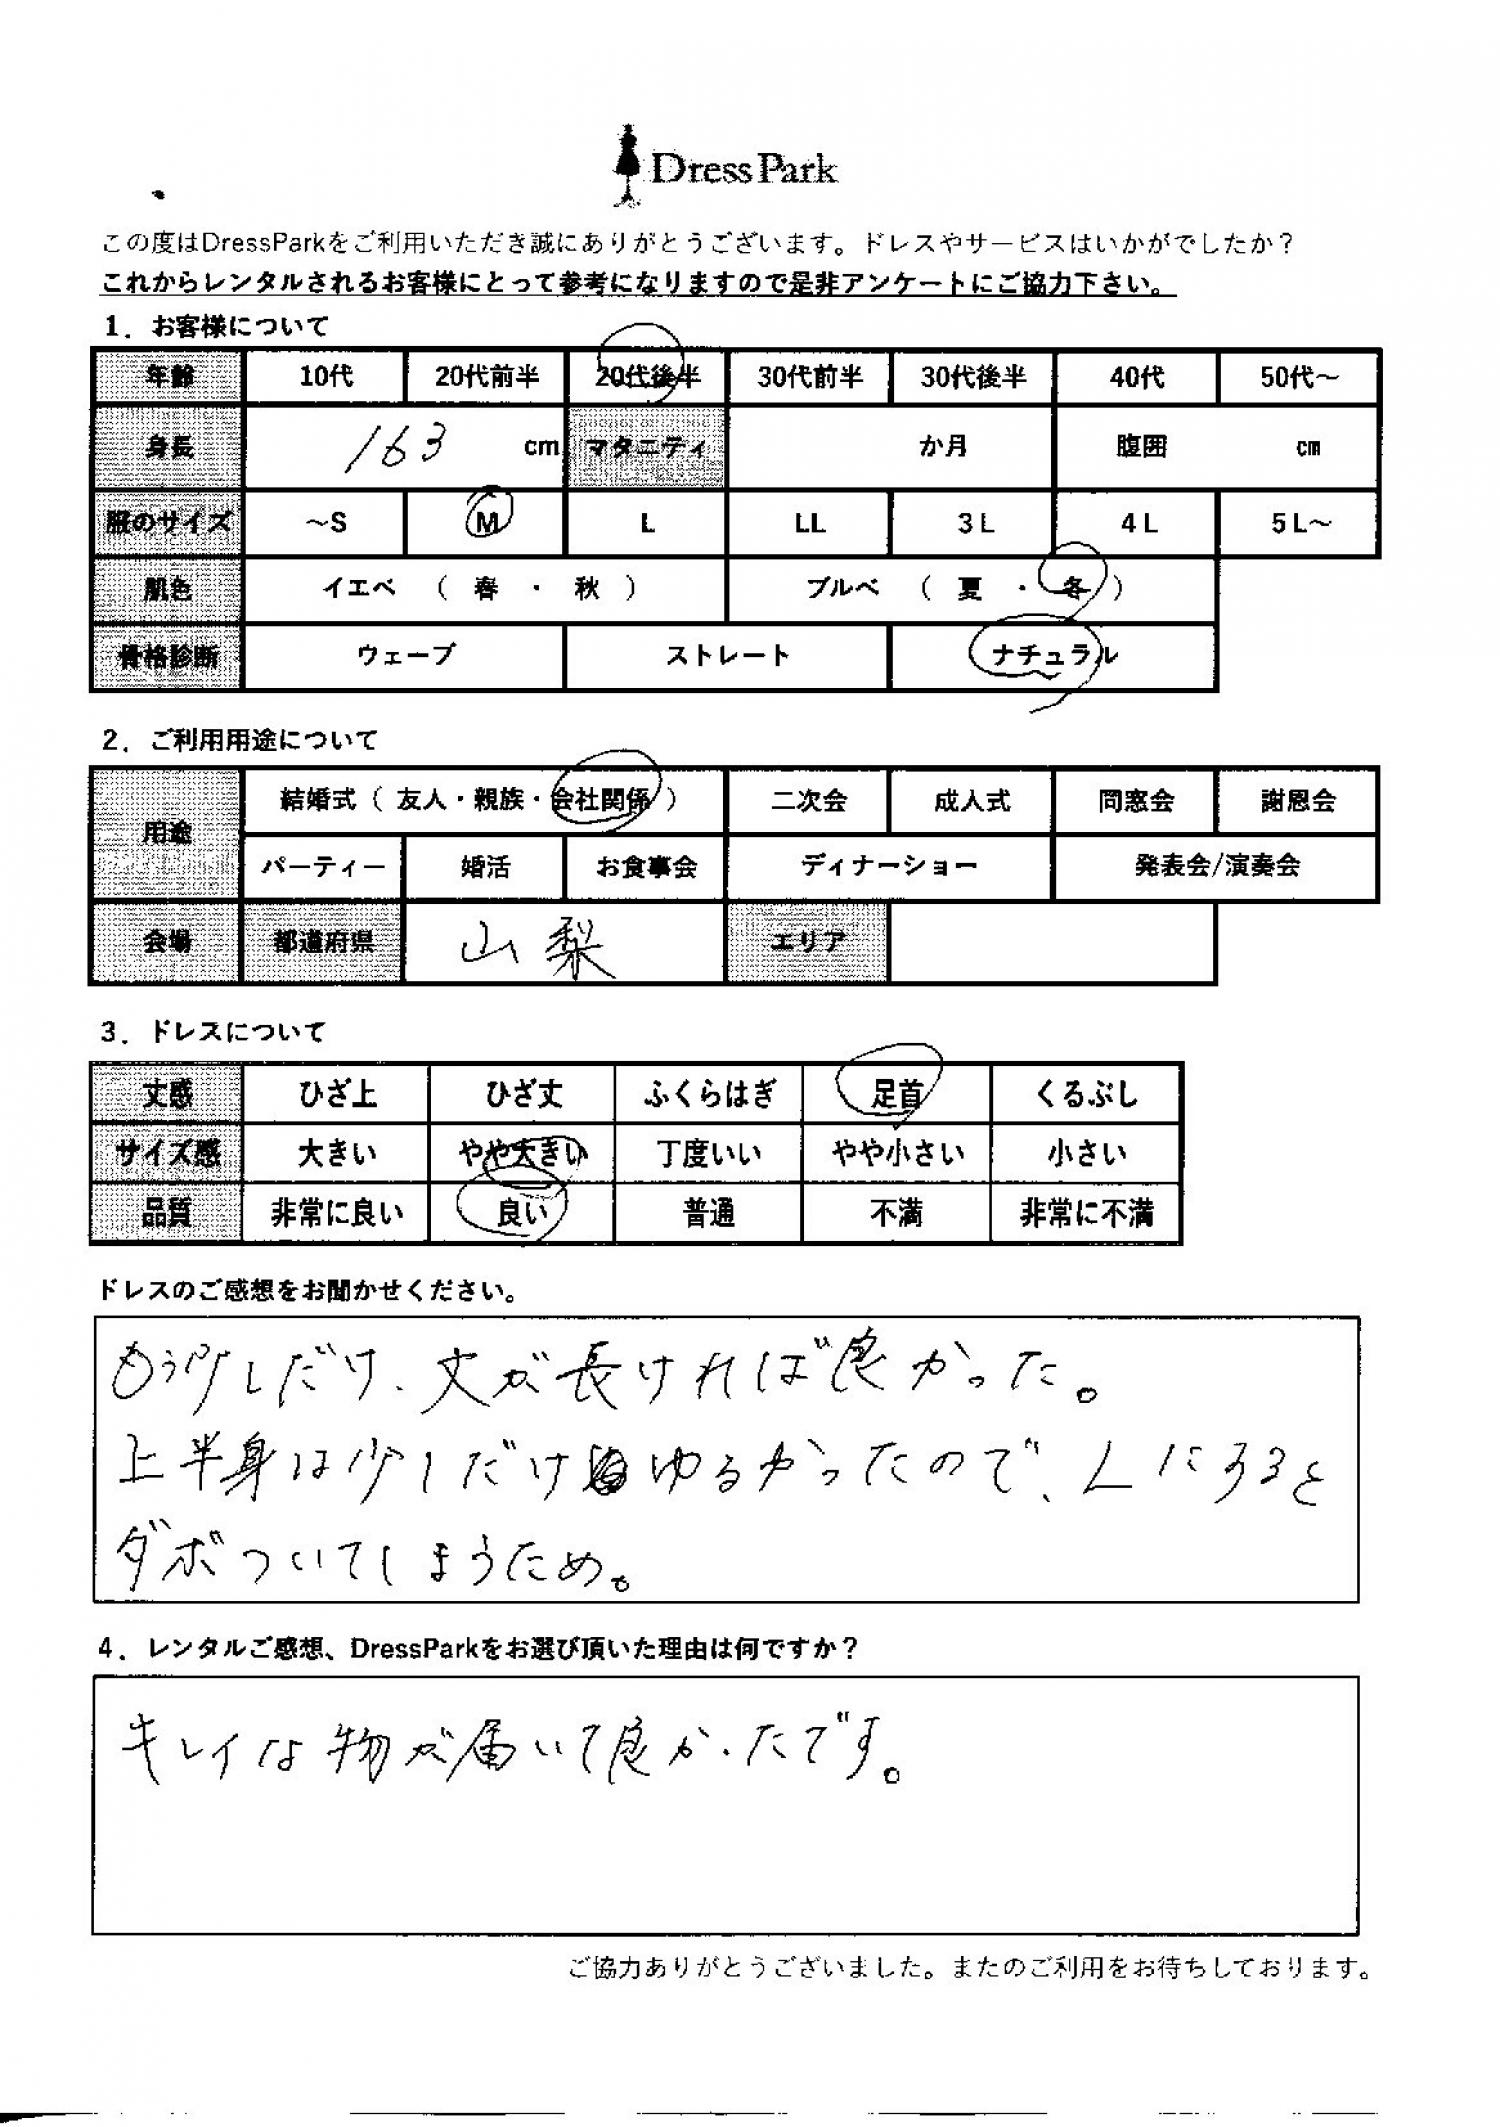 DressPark
この度はDressParkをご利用いただき誠にありがとうございます。ドレスやサービスはいかがでしたか？
これからレンタルされるお客様にとって参考になりますので是非アンケートにご協力下さい。
1．お客様について
年齢 10代 20代前半 20代後半 30代前半 30代後半 40代 50代～
身長 163 cm マタニティ か月 腹囲 cm
服のサイズ ～S M L LL 3L 4L 5L～
肌色 イエベ （ 春 ・ 秋 ） ブルベ （ 夏 ・ 冬 ）
骨格診断 ウェーブ ストレート ナチュラル
2．ご利用用途について
用途 結婚式（ 友人・親族・会社関係 ） 二次会 成人式 同窓会 謝恩会
パーティー 婚活 お食事会 ディナーショー 発表会/演奏会
会場 都道府県 山梨 エリア
3．ドレスについて
丈感 ひざ上 ひざ丈 ふくらはぎ 足首 くるぶし
サイズ感 大きい やや大きい 丁度いい やや小さい 小さい
品質 非常に良い 良い 普通 不満 非常に不満
ドレスのご感想をお聞かせください。
もう少しだけ、丈が長ければ良かった。
上半身は少しだけゆるかったので、Lにすると
ダボついてしまうため。
4．レンタルご感想、DressParkをお選び頂いた理由は何ですか？
キレイな物が届いて良かったです。
ご協力ありがとうございました。またのご利用をお待ちしております。